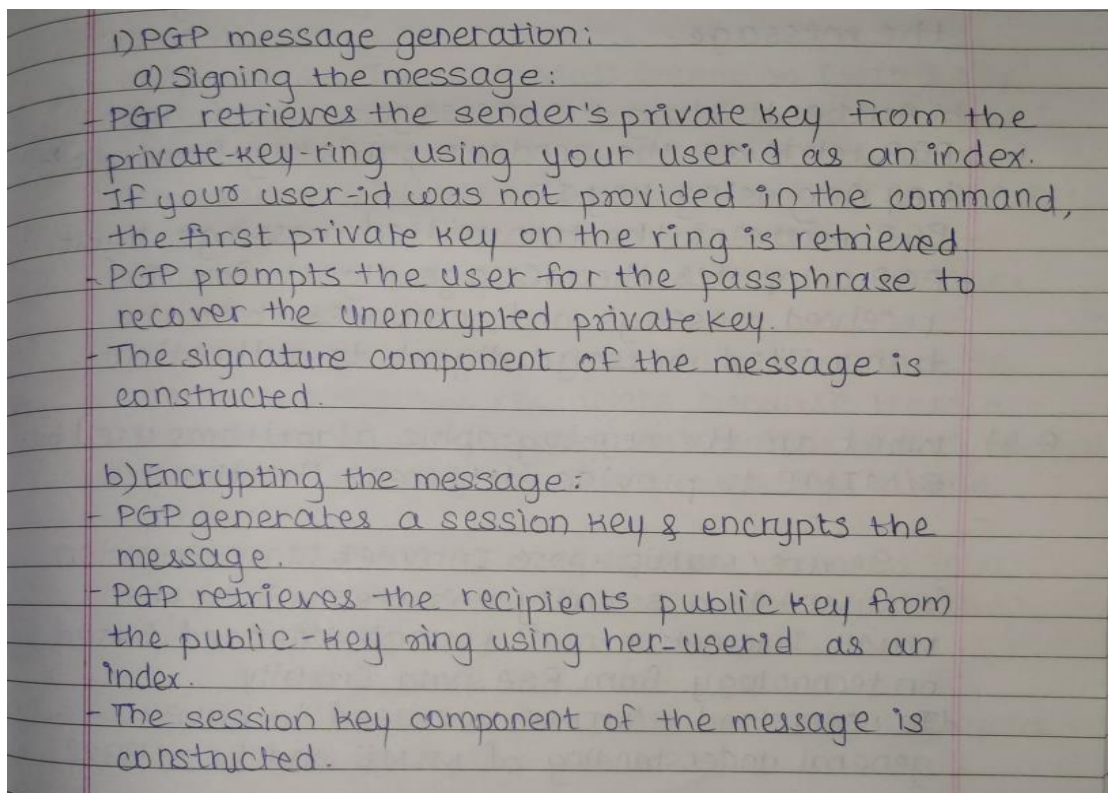 1) PGP message generation:
a) Signing the message:
- PGP retrieves the sender's private key from the
private-key-ring using your userid as an index.
If your user-id was not provided in the command,
the first private key on the ring is retrieved
- PGP prompts the user for the passphrase to
recover the unencrypted private key.
- The signature component of the message is
constructed.
b) Encrypting the message:
- PGP generates a session key & encrypts the
message.
- PGP retrieves the recipients public key from
the public-key ring using her-userid as an
index.
- The session key component of the message is
constructed.